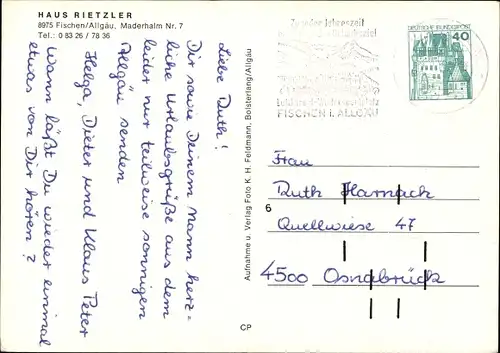 HAUS RIETZLER
8975 Fischen/Allgäu, Maderhalm Nr. 7
Tel.: 0 83 26 / 78 36
Liebe Ruth!
Dir sowie Deinem Mann herz-
liche Urlaubsgrüße aus dem
leider nur teilweise sonnigen
Allgäu senden
Helga, Dieter und Klaus Peter
Wann läßt Du wieder einmal
etwas von Dir hören?
Aufnahme u. Verlag Foto K. H. Feldmann, Bolsterlang/Allgäu
CP
Zu jeder Jahreszeit
FISCHEN i. ALLGÄU
DEUTSCHE BUNDESPOST
40
Frau
Ruth Harnach
6
Quellwiese 47
4500 Osnabrück